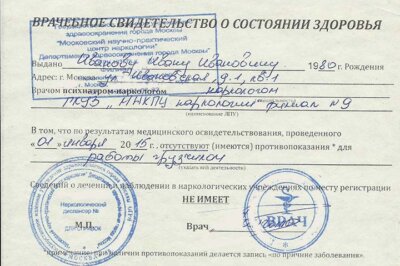 ВРАЧЕБНОЕ СВИДЕТЕЛЬСТВО О СОСТОЯНИИ ЗДОРОВЬЯ
здравоохранения города Москвы
"Московский научно-практический
центр наркологии"
Департамента здравоохранения города Москвы"
Выдано Иванову Ивану Ивановичу 1980 г. Рождения
Адрес: г. Москва, ул. Ивановская, д.1, кв.1
Врачом психиатром-наркологом наркологом
ГКУЗ "МНПЦ наркологии" филиал №9
(наименование ЛПУ)
В том, что по результатам медицинского освидетельствования, проведенного
«01» января 2015 г. отсутствуют (имеются) противопоказания * для
работы грузчиком
(указать вид деятельности)
Сведений о лечении и наблюдении в наркологических учреждениях по месту регистрации
НЕ ИМЕЕТ
Наркологический
диспансер №
М.П.
ДЛЯ СПРАВОК
Врач
ВРАЧ
*примечание: при наличии противопоказаний делается запись «по заболеванию»